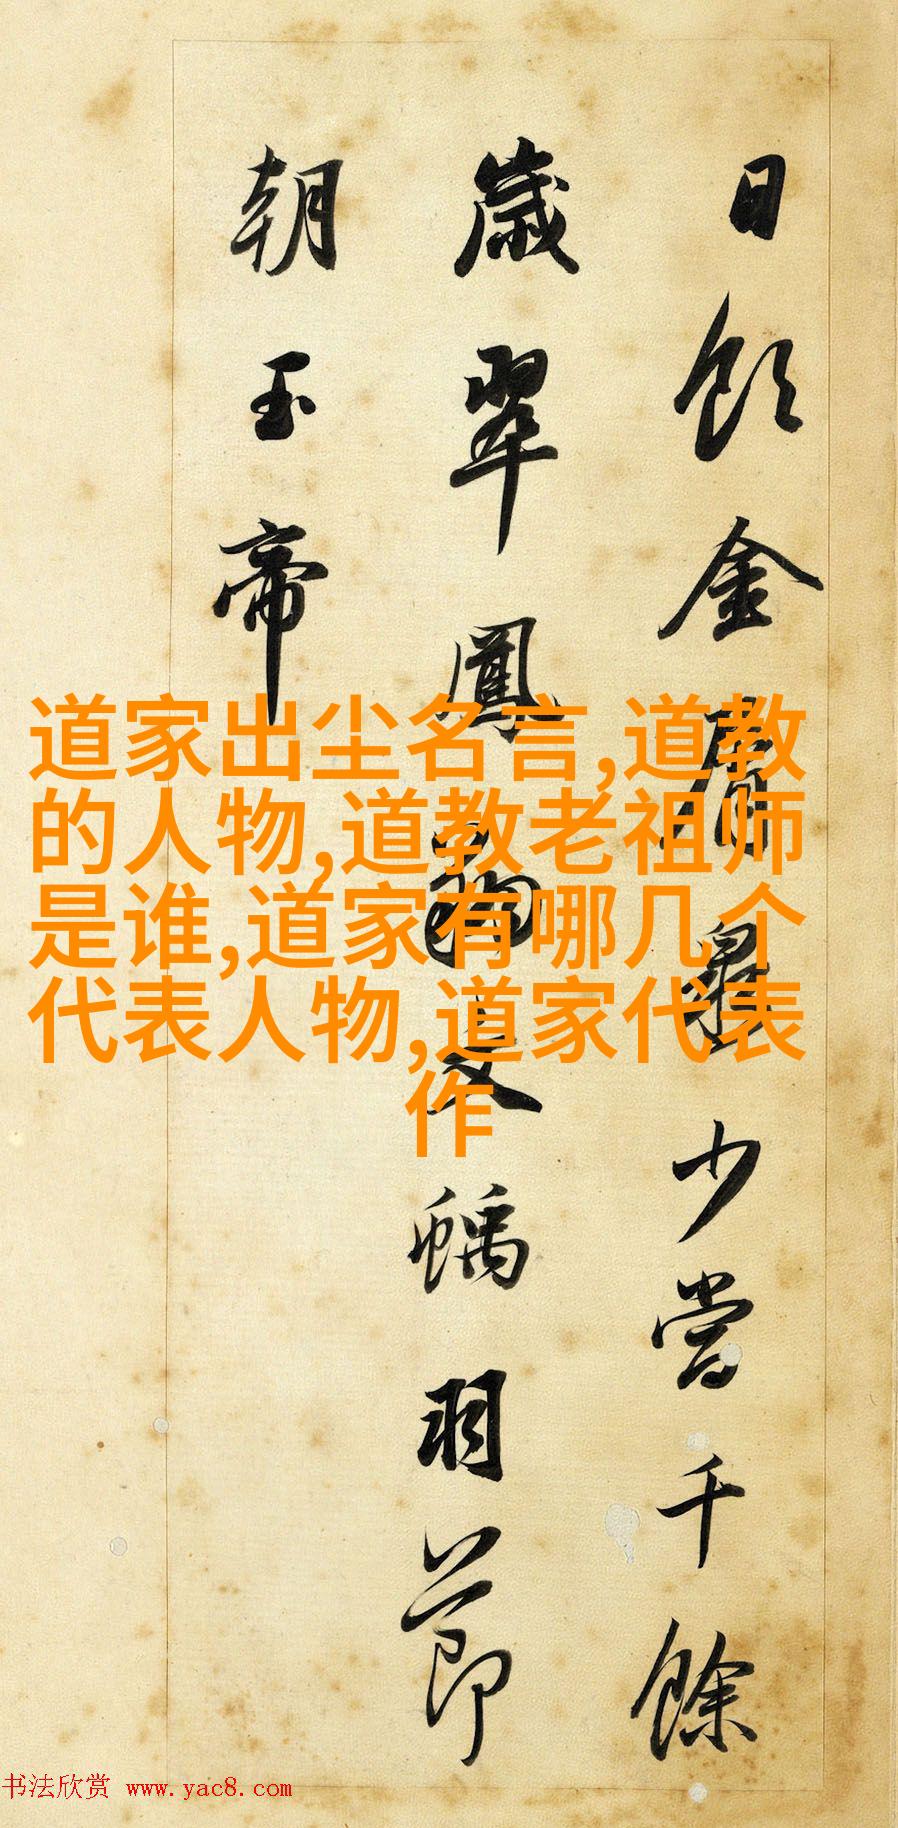 日飲金屑泉少當千餘
歲翠鳳文螭羽節
朝玉帝
道家出尘名言,道教
的人物,道教老祖师
是谁,道家有哪几个
代表人物,道家代表
作
书法欣赏 www.yac8.com